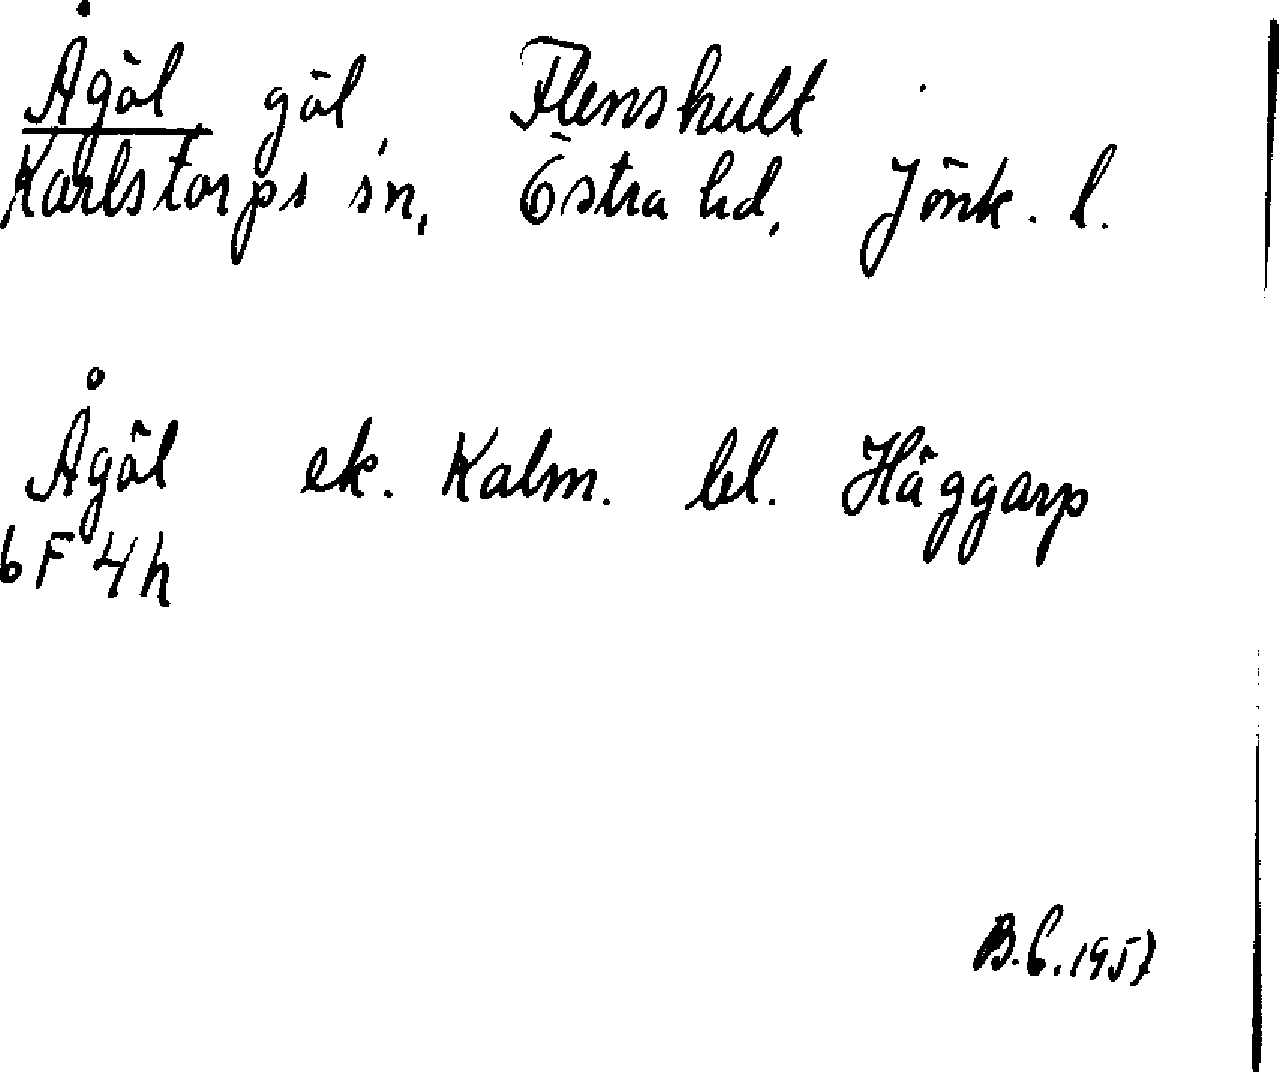 Ågöl göl, Flenshult
Karlstorps sn, Östra hd, Jönk. l.
Ågöl ek. Kalm. bl. Häggarp
6F 4h
B.C. 1957